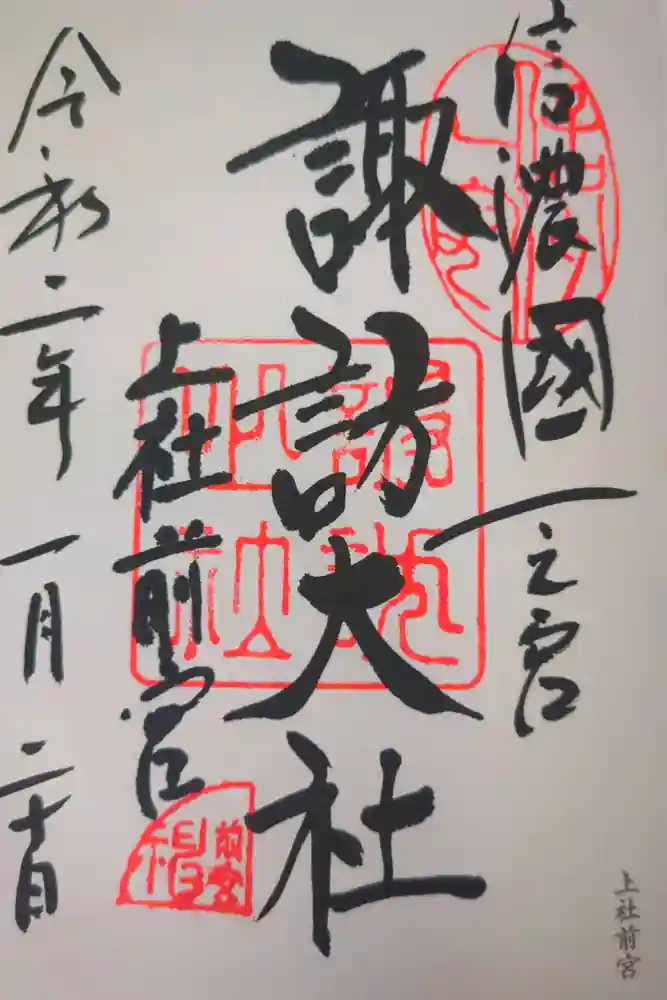 信濃國一之宮
諏訪大社
上社前宮
令和二年一月二十日
前宮
上社前宮